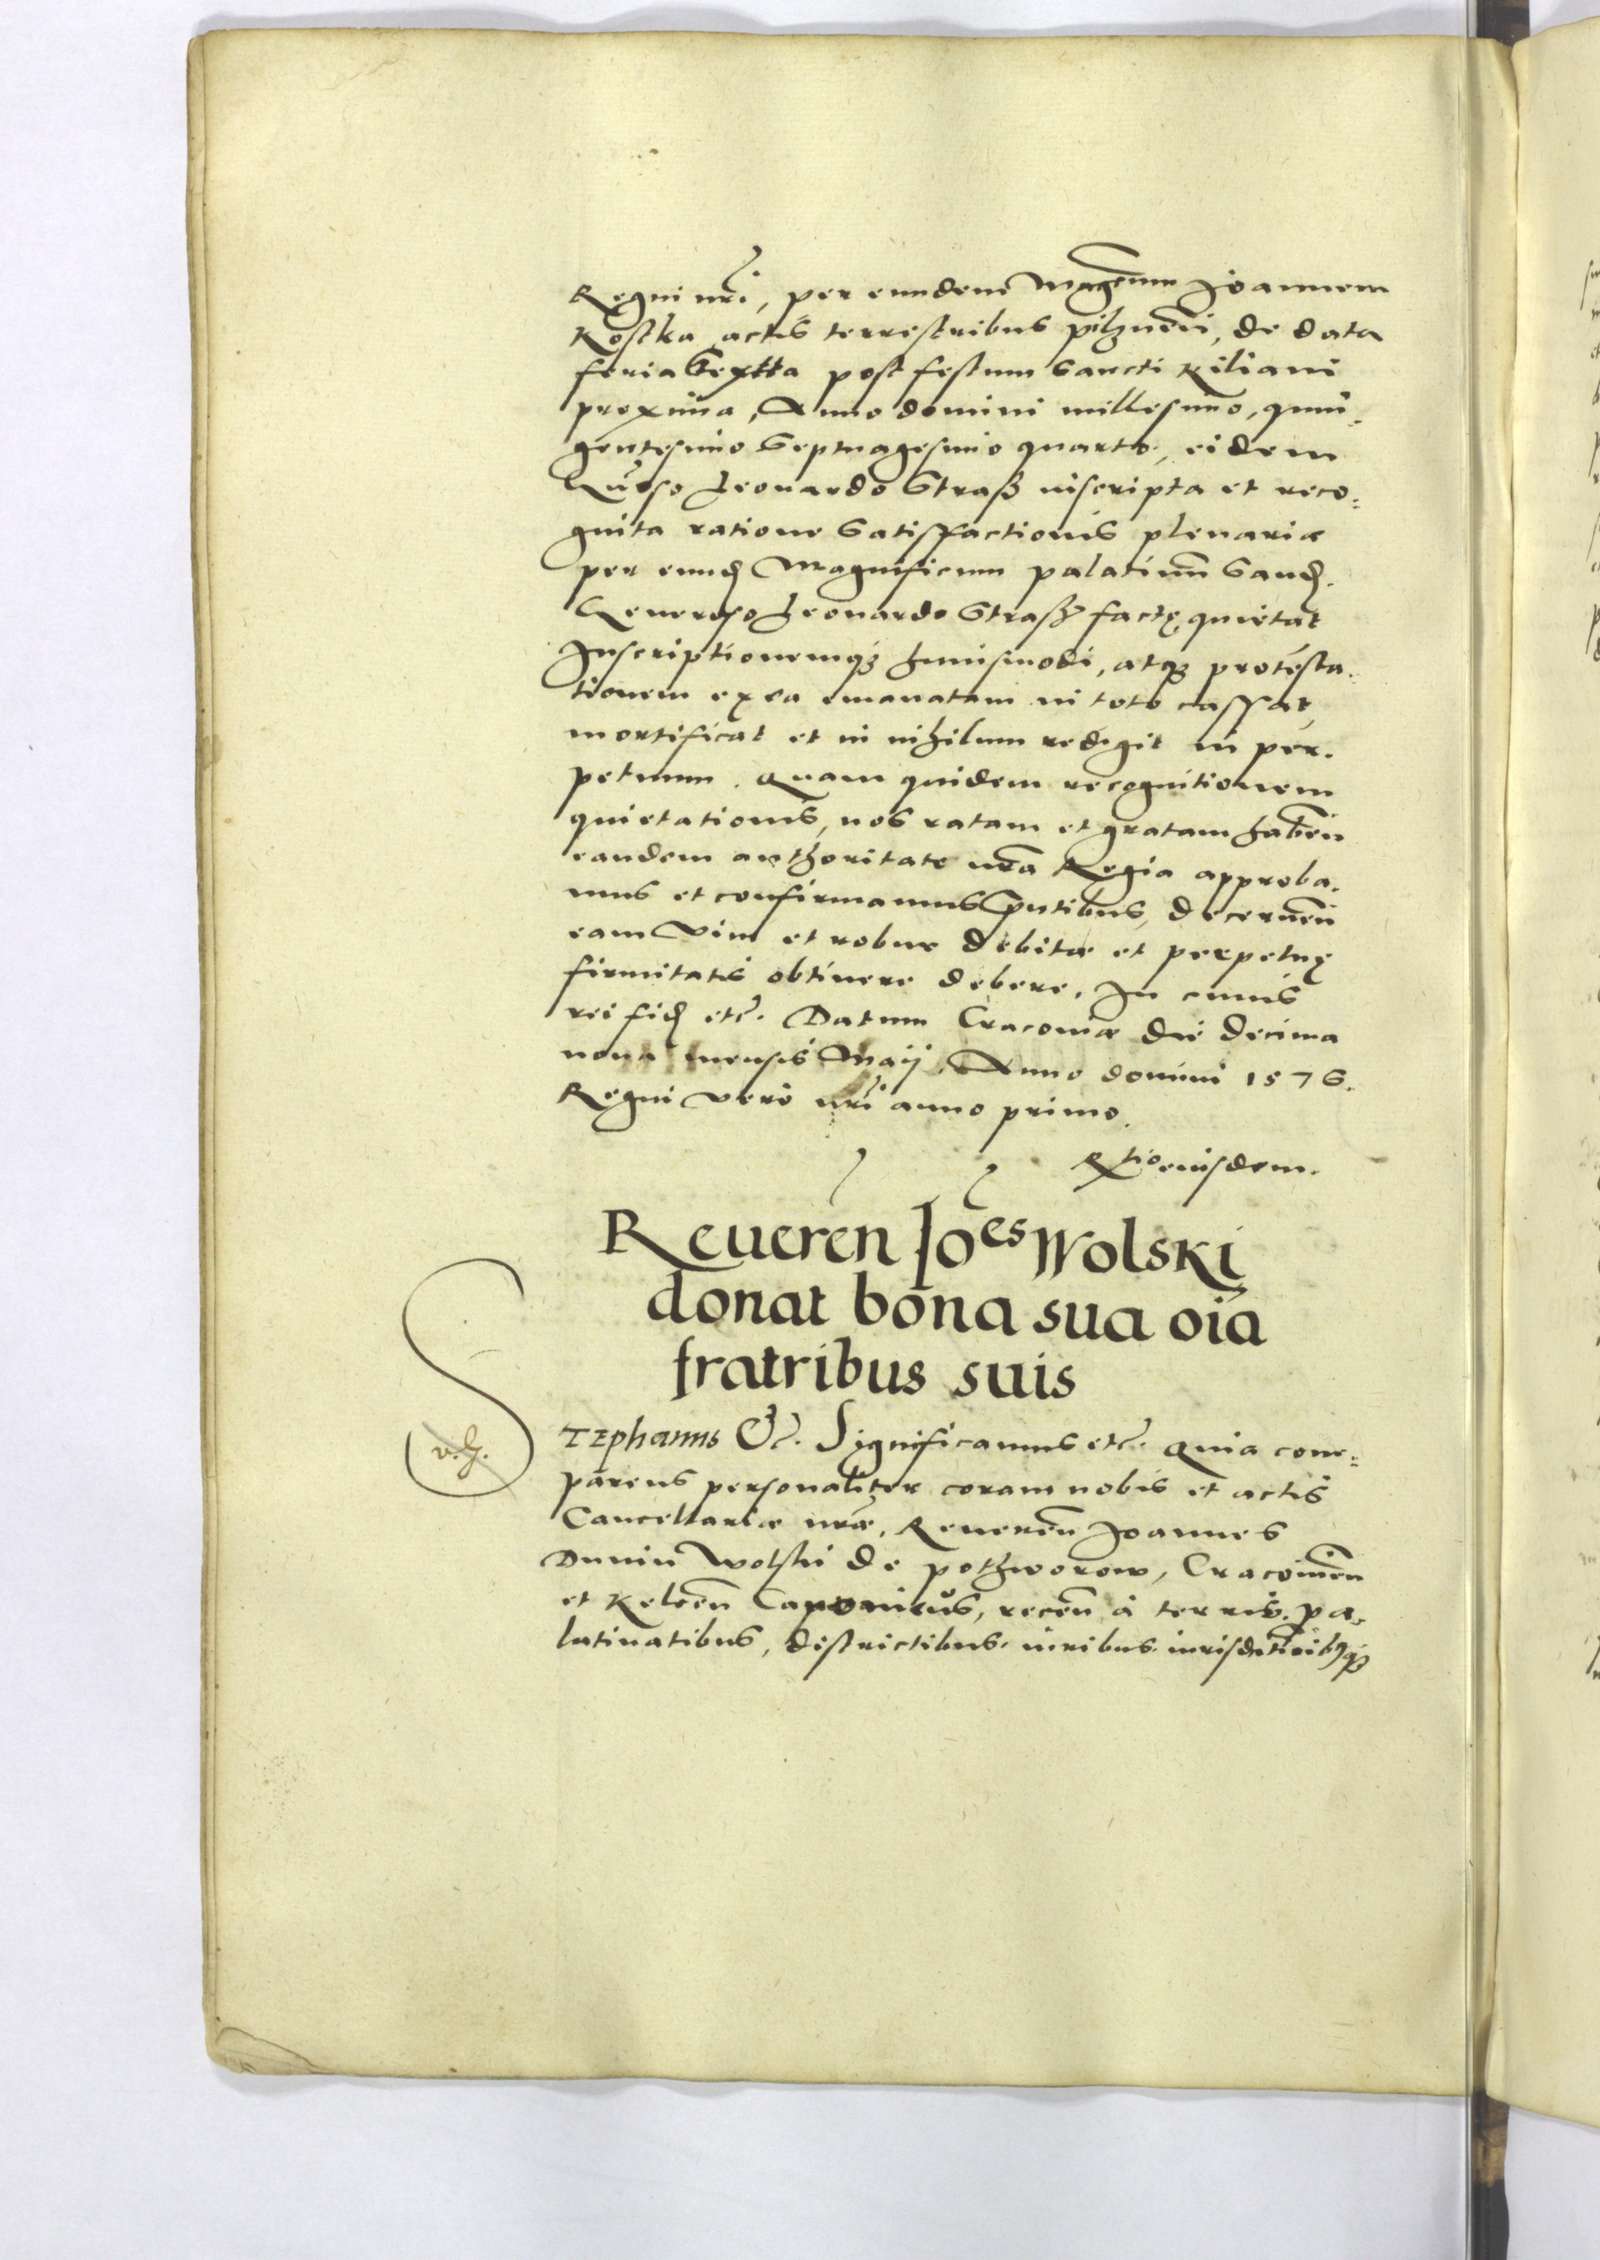 Regni nrĩ, per eundem Magcum Joannem
Kostka, actis terrestribus pilznen̄, de data
feria Sextta post festum Sancti Kiliani
proxima, Anno domini millesimo, quin¬
gentesimo Septuagesimo quarto, eidem
Gn̄oso Leonardo Straß inscripta et reco¬
gnita ratione Satisfactionis plenariæ
per eund̃ Magnificum palatinum Sand̃.
Generoso Leonardo Straß factę, quietat
Inscriptionemqȝ huiusmodi, atqȝ protesta.
tionem ex ea emanatam in toto cassat,
mortificat et in nihilum redigit in per.
petuum. Quam quidem recognitionem
quietationis, nos ratam et gratam haben̄
eandem authoritate nr̃a Regia approba.
mus et confirmamus p̃ntibus, decernen̄
eam vim et robur debitæ et perpetuę
firmitatis obtinere debere. In cuius
rei fid̃ etc̃. Datum Cracoviæ die decima
nona mensis Maij. Anno domini 1576.
Regni vero nr̃i anno primo.
Rtio eiusdem.
Reveren̄ Jōes Wolski
donat bona sua oīa
fratribus suis
STEphanus &c̃. Significamus etc̃. Quia com¬
parens personaliter coram nobis et actis
Cancellariæ nr̃æ, Reveren̄ Joannes
Dunin Wolski de pothworow, Cracovien̄
et Kelcen̄ Canonicus, recen̄ à terris. pa.
latinatibus, districtibus. iuribus. iurisdictionibusqȝ